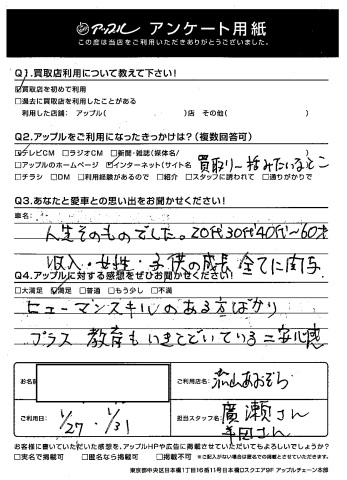 アップル アンケート用紙
この度は当店をご利用いただきありがとうございました。
Q1.買取店利用について教えて下さい!
☑買取店を初めて利用
□過去に買取店を利用したことがある
利用した店舗: アップル( )店 その他( )
Q2.アップルをご利用になったきっかけは?(複数回答可)
☑テレビCM □ラジオCM □新聞・雑誌(媒体名/
□アップルのホームページ ☑インターネット(サイト名 買取り一括みたいなところ
□チラシ □DM □利用経験があるので □紹介 □スタッフに誘われて □通りがかりで
Q3.あなたと愛車との思い出をお聞かせください!
車名:
人生そのものでした。20代30代40代〜60才
収入・女性・子供の成長 全てに関与
Q4.アップルに対する感想をぜひお聞かせください!
□大満足 ☑満足 □普通 □もう少し □不満
ヒューマンスキルのある方ばかり
プラス 教育もいきとどいている=安心感
お名前
ご利用店名: 流山あおぞら
ご利用日: 1/27・1/31
担当スタッフ名: 廣瀬さん
お客様に書いていただいた感想を、アップルHPや広告に掲載させていただいてもよろしいでしょうか?
□実名で掲載可 □匿名なら掲載可 □掲載不可 ※ご記入がない場合は匿名での掲載とさせていただきます。
東京都中央区日本橋1丁目16番11号日本橋Dスクエア9F アップルチェーン本部